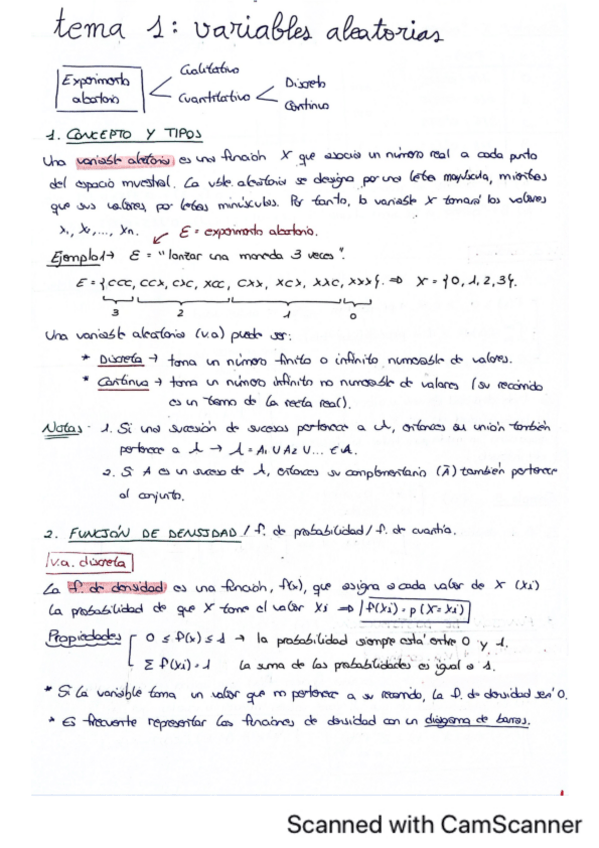 tema 1: variables aleatorias
Experimento aleatorio
Cualitativo
Cuantitativo
Discreto
Continuo
1. CONCEPTO Y TIPOS
Una variable aleatoria es una función X que asocia un número real a cada punto
del espacio muestral. La vble. aleatoria se designa por una letra mayúscula, mientras
que sus valores, por letras minúsculas. Por tanto, la variable X tomará los valores
x₁, x₂, ..., xn.
E = experimento aleatorio.
Ejemplo 1 → E = "lanzar una moneda 3 veces".
E = {CCC, CCX, CXC, XCC, CXX, XCX, XXC, XXX}. ⇒ X = {0, 1, 2, 3}.
3 2 1 0
Una variable aleatoria (v.a) puede ser:
* Discreta → toma un número finito o infinito numerable de valores.
* Continua → toma un número infinito no numerable de valores (su recorrido
es un tramo de la recta real).
Notas · 1. Si una sucesión de sucesos pertenece a A, entonces su unión también
pertenece a A → A = A₁ U A₂ U ... ∈ A.
2. Si A es un suceso de A, entonces su complementario (Ā) también pertenece
al conjunto.
2. FUNCIÓN DE DENSIDAD / f. de probabilidad / f. de cuantía.
v.a. discreta
La f. de densidad es una función, f(x), que asigna a cada valor de X (xi)
la probabilidad de que X tome el valor xi ⇒ f(xi) = p(X = xi)
Propiedades
0 ≤ f(x) ≤ 1 → la probabilidad siempre está entre 0 y 1.
Σ f(xi) = 1 la suma de las probabilidades es igual a 1.
* Si la variable toma un valor que no pertenece a su recorrido, la f. de densidad será 0.
* Es frecuente representar las funciones de densidad con un diagrama de barras.
1
Scanned with CamScanner